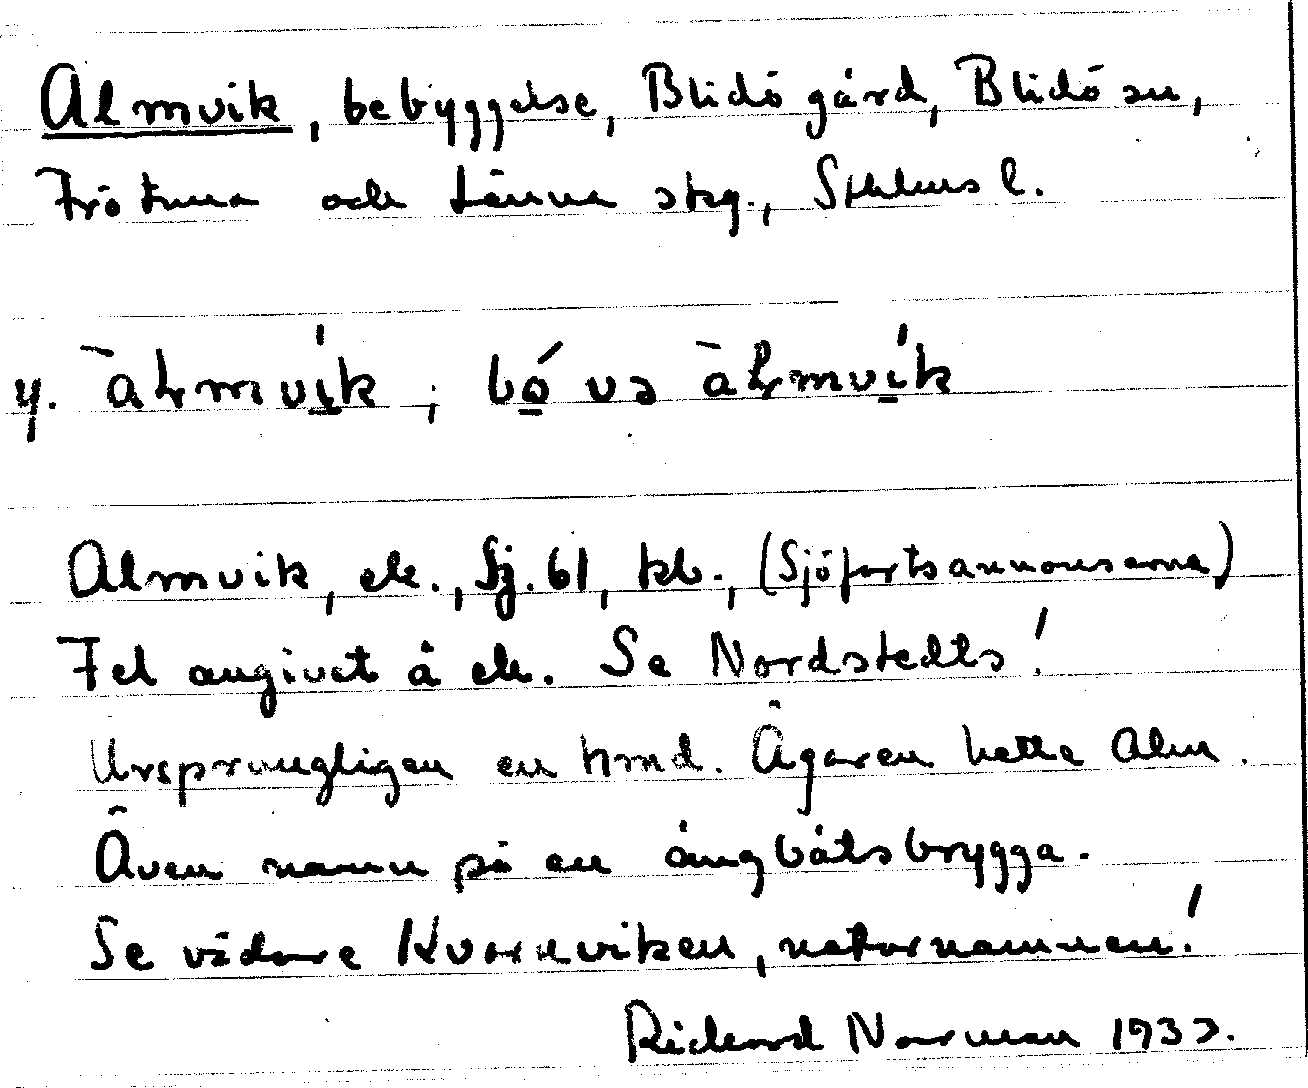 Almvik, bebyggelse, Blidö gård, Blidö sn,
Frötuna och Länna skg., Sthlms l.
y. àłmvík ; bó və àłmvík
Almvik, ek., Sj. 61, kb., (Sjöfartsannonserna)
Fel angivet å ek. Se Nordstedts!
Ursprungligen en hmd. Ägaren hette Alm.
Även namn på en ångbåtsbrygga.
Se vidare Kvarnviken, naturnamnen!
Rickard Norman 1933.